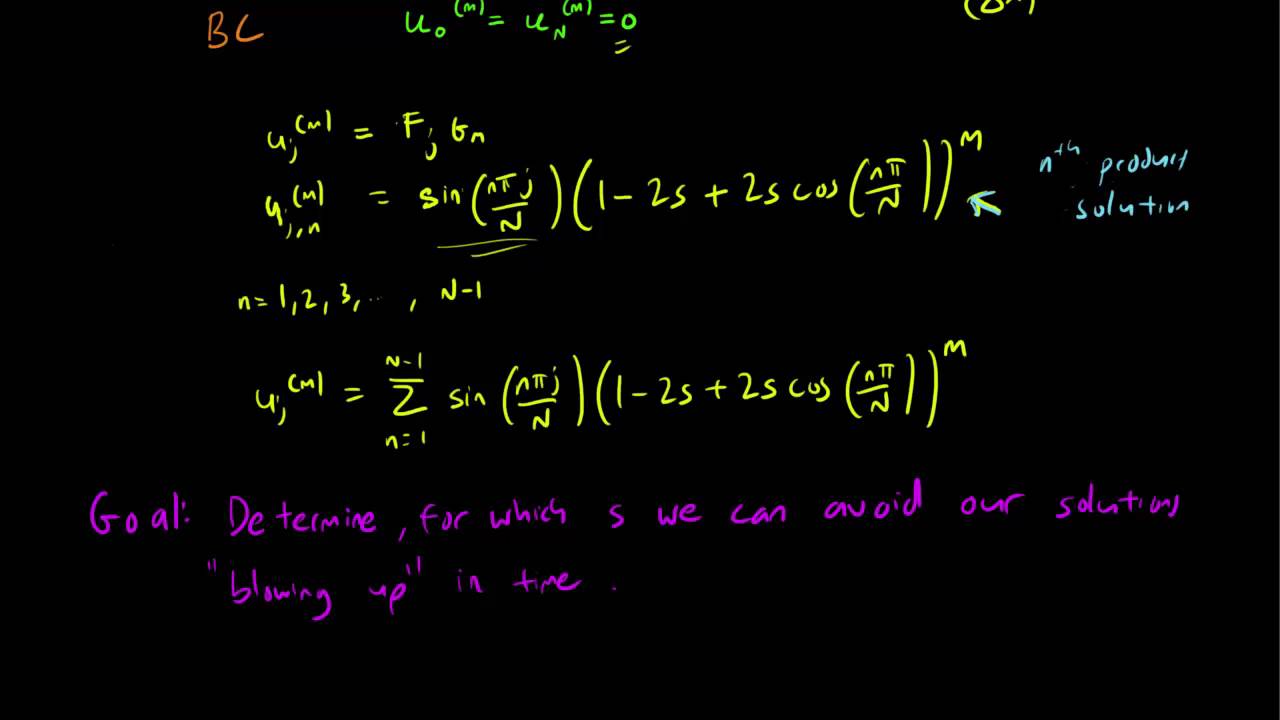 BC u₀⁽ᵐ⁾ = u_N⁽ᵐ⁾ = 0
u_j⁽ᵐ⁾ = F_j G_n
u_{j,n}⁽ᵐ⁾ = sin(nπj/N)(1 - 2s + 2s cos(nπ/N))ᵐ nᵗʰ product
solution
n = 1, 2, 3, ... , N-1
u_j⁽ᵐ⁾ = Σ_{n=1}^{N-1} sin(nπj/N)(1 - 2s + 2s cos(nπ/N))ᵐ
Goal: Determine, for which s we can avoid our solutions
"blowing up" in time.